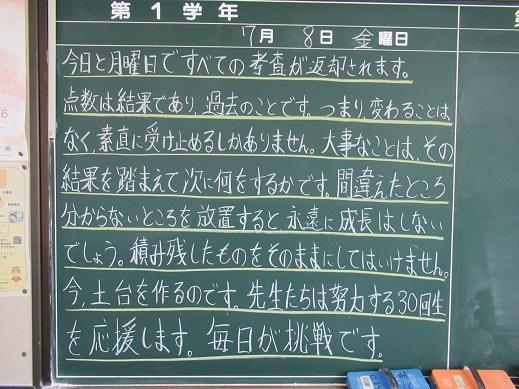 第1学年
7月 8日 金曜日
今日と月曜日ですべての考査が返却されます。
点数は結果であり、過去のことです。つまり、変わることは
なく、素直に受け止めるしかありません。大事なことは、その
結果を踏まえて次に何をするかです。間違えたところ
分からないところを放置すると永遠に成長はしない
でしょう。積み残したものをそのままにしてはいけません。
今、土台を作るのです。先生たちは努力する30回生
を応援します。毎日が挑戦です。